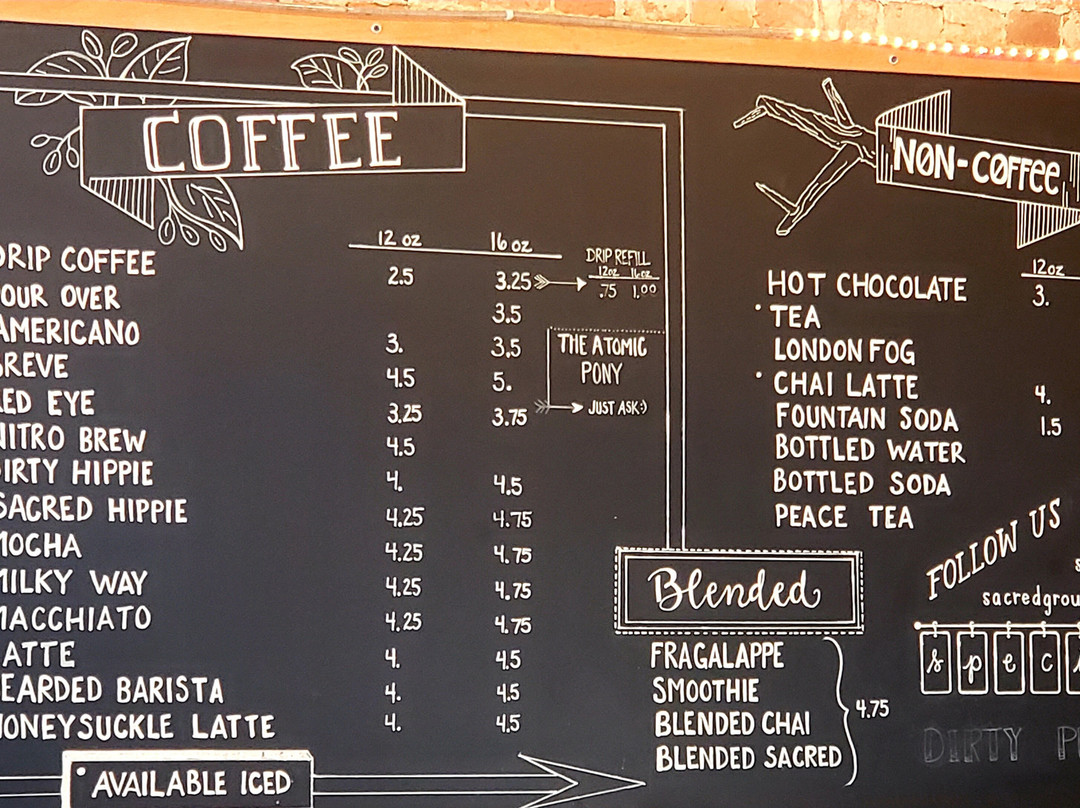 COFFEE
12 oz 16 oz
DRIP COFFEE 2.5 3.25
OUR OVER 3.5
AMERICANO 3. 3.5
BREVE 4.5 5.
ED EYE 3.25 3.75
NITRO BREW 4.5
DIRTY HIPPIE 4. 4.5
SACRED HIPPIE 4.25 4.75
MOCHA 4.25 4.75
MILKY WAY 4.25 4.75
MACCHIATO 4.25 4.75
ATTE 4. 4.5
EARDED BARISTA 4. 4.5
HONEYSUCKLE LATTE 4. 4.5
• AVAILABLE ICED
DRIP REFILL
12oz 16oz
.75 1.00
THE ATOMIC
PONY
JUST ASK:)
Blended
FRAGALAPPE
SMOOTHIE
BLENDED CHAI
BLENDED SACRED
4.75
NON-COFFEE
12oz
HOT CHOCOLATE 3.
• TEA
LONDON FOG
• CHAI LATTE 4.
FOUNTAIN SODA 1.5
BOTTLED WATER
BOTTLED SODA
PEACE TEA
FOLLOW US
sacredgrou
spec
DIRTY P